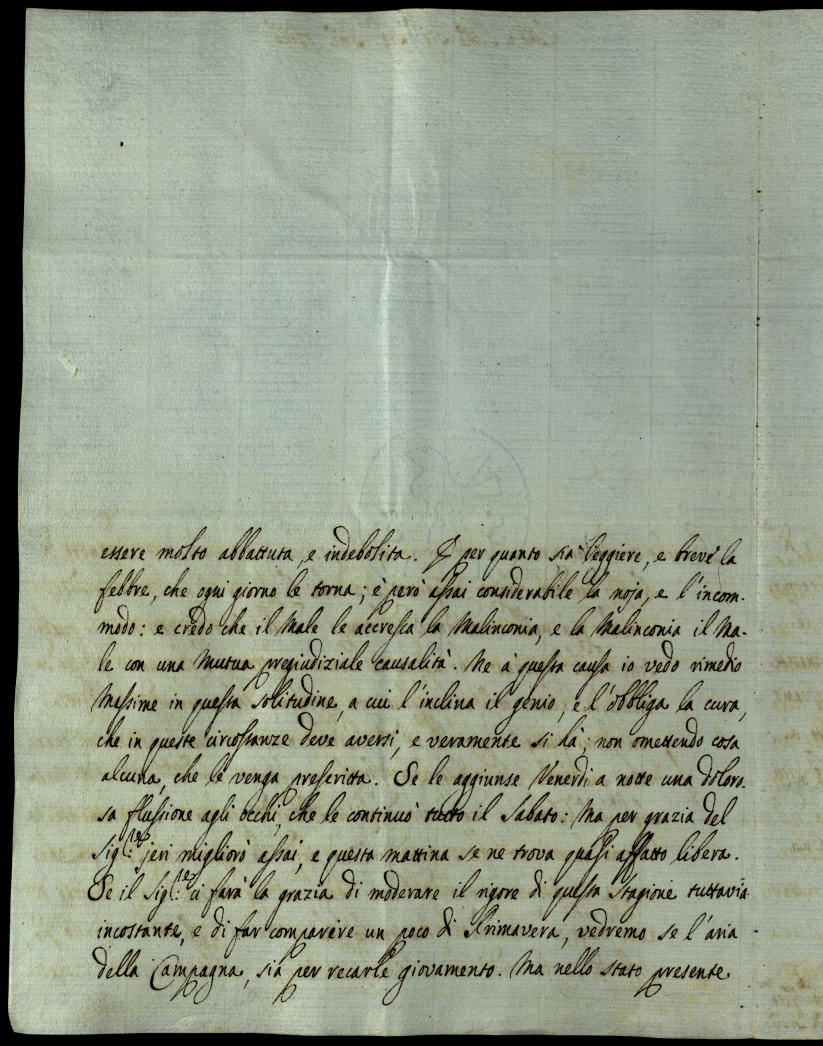 essere molto abbattuta, e indebolita. E per quanto sia leggiere, e breve la
febbre, che ogni giorno le torna; è però assai considerabile la noja, e l'incom-
modo: e credo che il Male le accresca la Malinconia, e la Malinconia il Ma-
le con una Mutua pregiudiziale causalità. Ne à questa causa io vedo rimedio
Massime in questa solitudine, a cui l'inclina il genio, e l'obbliga la cura,
che in queste circostanze deve aversi, e veramente si hà; non omettendo cosa
alcuna, che le venga prescritta. Se le aggiunse Venerdi a notte una doloro-
sa flussione agli occhi, che le continuò tutto il Sabato: Ma per grazia del
Sig:re jeri migliorò assai, e questa mattina se ne trova quasi affatto libera.
Se il Sig:re ci farà la grazia di moderare il rigore di questa Stagione tuttavia
incostante, e di far comparire un poco di Primavera, vedremo se l'aria
della Campagna, sia per recarle giovamento. Ma nello stato presente